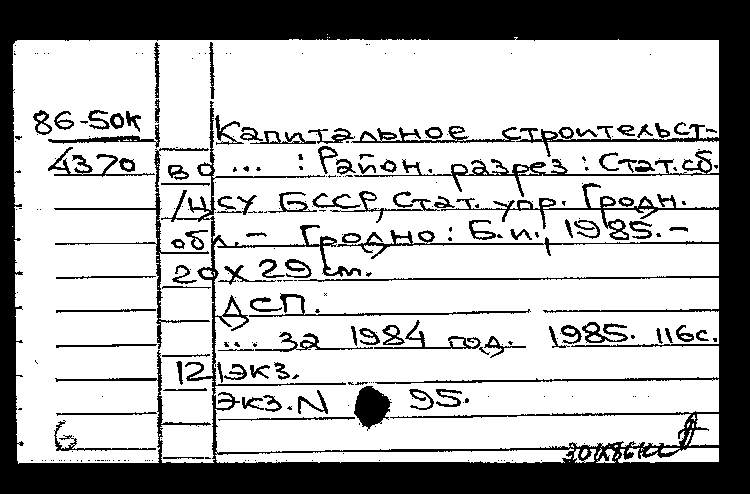 86-50к
4370
Капитальное строительст-
во ... : Район. разрез : Стат. сб.
/ ЦСУ БССР, Стат. упр. Гродн.
обл. - Гродно : Б.и., 1985. -
20 х 29 см.
ДСП.
... за 1984 год. 1985. 116с.
12 1экз.
Экз. N 95.
6